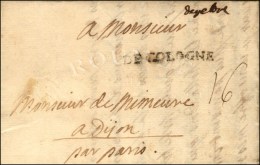 a Monsieur
DE COLOGNE
16
Monsieur de Mimeure
a Dijon
par paris.